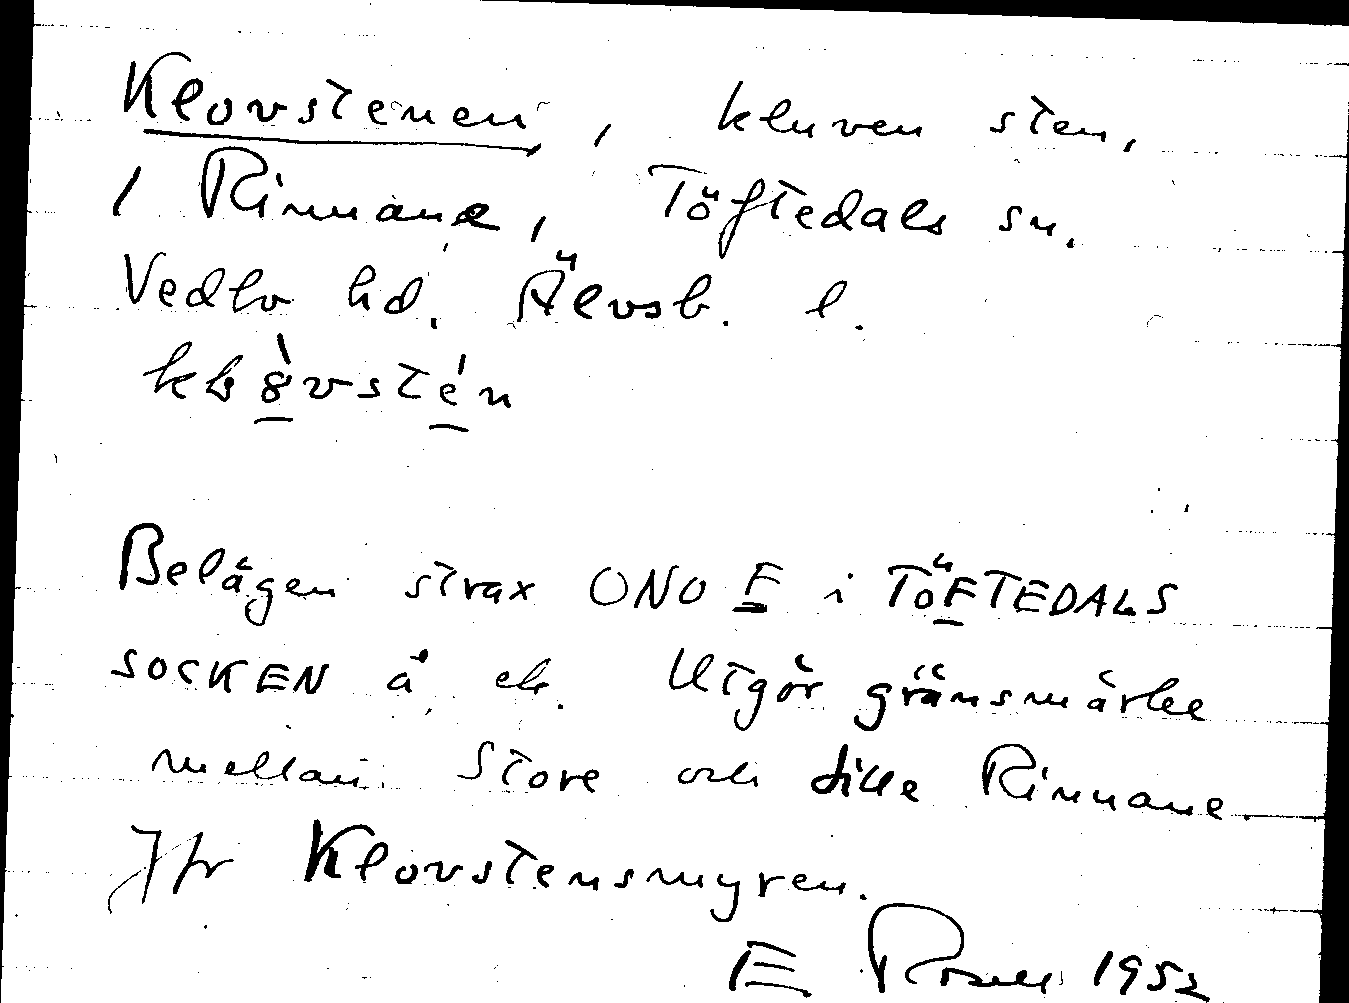 Klovstenen, kluven sten,
/ Rinnane, Töftedals sn.
Vedbo hd. Älvsb. l.
Belägen strax ONO F i TÖFTEDALS
SOCKEN å ek. Utgör gränsmärke
mellan Store och Lille Rinnane.
Jfr Klovstensmyren.
E 1952